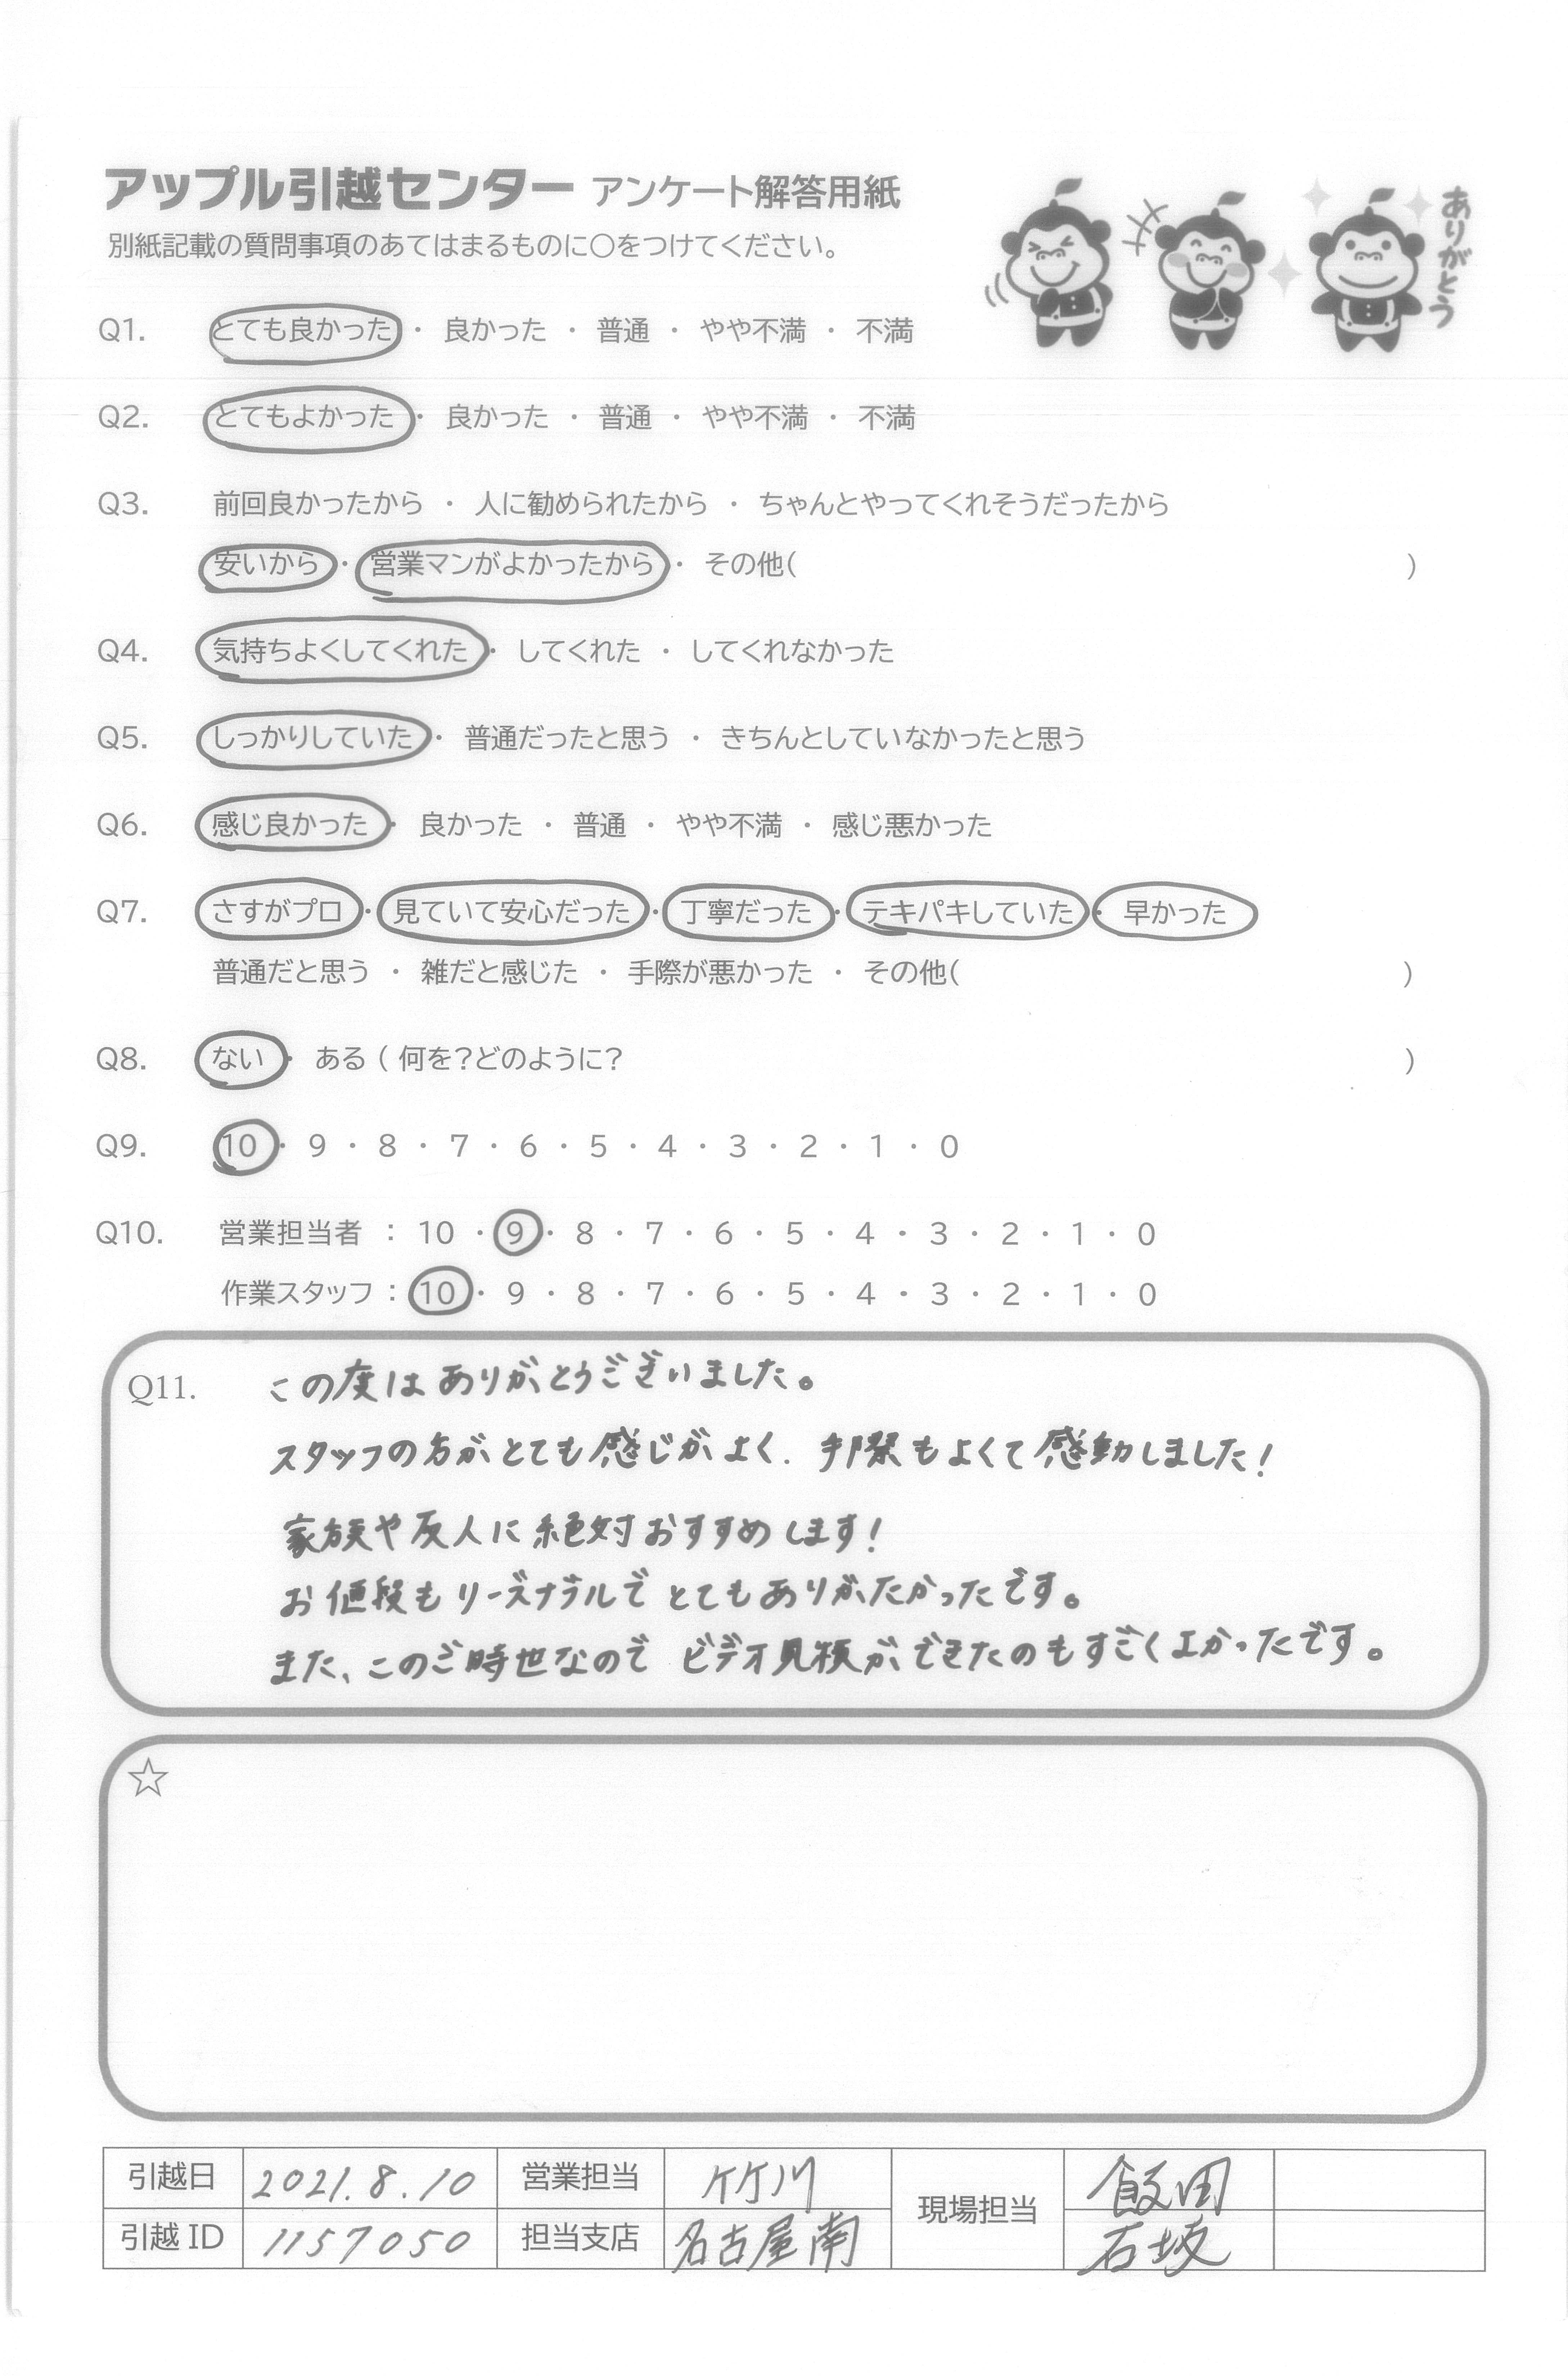 アップル引越センター アンケート解答用紙
別紙記載の質問事項のあてはまるものに○をつけてください。
ありがとう
Q1. とても良かった ・ 良かった ・ 普通 ・ やや不満 ・ 不満
Q2. とてもよかった ・ 良かった ・ 普通 ・ やや不満 ・ 不満
Q3. 前回良かったから ・ 人に勧められたから ・ ちゃんとやってくれそうだったから
安いから ・ 営業マンがよかったから ・ その他( )
Q4. 気持ちよくしてくれた ・ してくれた ・ してくれなかった
Q5. しっかりしていた ・ 普通だったと思う ・ きちんとしていなかったと思う
Q6. 感じ良かった ・ 良かった ・ 普通 ・ やや不満 ・ 感じ悪かった
Q7. さすがプロ ・ 見ていて安心だった ・ 丁寧だった ・ テキパキしていた ・ 早かった
普通だと思う ・ 雑だと感じた ・ 手際が悪かった ・ その他( )
Q8. ない ・ ある ( 何を?どのように? )
Q9. 10 ・ 9 ・ 8 ・ 7 ・ 6 ・ 5 ・ 4 ・ 3 ・ 2 ・ 1 ・ 0
Q10. 営業担当者 : 10 ・ 9 ・ 8 ・ 7 ・ 6 ・ 5 ・ 4 ・ 3 ・ 2 ・ 1 ・ 0
作業スタッフ : 10 ・ 9 ・ 8 ・ 7 ・ 6 ・ 5 ・ 4 ・ 3 ・ 2 ・ 1 ・ 0
Q11. この度はありがとうございました。
スタッフの方がとても感じがよく、手際もよくて感動しました!
家族や友人に絶対おすすめします!
お値段もリーズナブルでとてもありがたかったです。
また、このご時世なのでビデオ見積ができたのもすごくよかったです。
☆
引越日 2021.8.10 営業担当 竹川 現場担当 飯田
引越 ID 1157050 担当支店 名古屋南 石坂